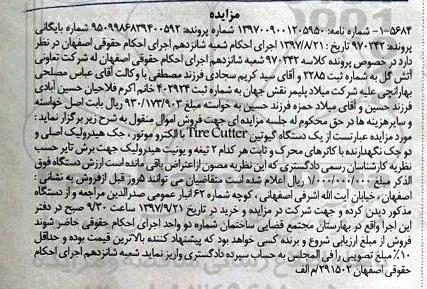 مزایده
۱-۵۶۸۴- شماره نامه: ۱۳۹۷۰۰۹۰۰۱۲۰۵۹۵۰ شماره پرونده: ۹۵۰۹۹۸۶۸۳۹۴۰۰۵۹۲ شماره بایگانی
پرونده: ۹۷۰۲۴۲ تاریخ: ۱۳۹۷/۸/۲۱ اجرای احکام شعبه شانزدهم اجرای احکام حقوقی اصفهان در نظر
دارد در خصوص پرونده کلاسه ۹۷۰۲۴۲ شعبه شانزدهم اجرای احکام حقوقی اصفهان له شرکت تعاونی
آتش گل به شماره ثبت ۲۲۸۵ و آقای سید کریم سجادی فرزند مصطفی با وکالت آقای عباس مصلحی
بهارانچی علیه شرکت میلاد پلیمر نقش جهان به شماره ثبت ۴۰۲۹۲۴ خانم اکرم فلاحیان حسین آبادی
فرزند حسین و آقای میلاد حمزه فرزند حسین به خواسته مبلغ ۹۳۰/۱۷۳/۹۰۳ ریال بابت اصل خواسته
و سایر هزینه ها در حق محکوم له جلسه مزایده ای جهت فروش اموال منقول به شرح زیر برگزار نماید:
مورد مزایده عبارتست از یک دستگاه گیوتین Tire Cutter با الکترو موتور، جک هیدرولیک اصلی و
دو جک نگهدارنده با کاترهای محرک و ثابت هر کدام ۲ تیغه و یونیت هیدرولیک جهت برش تایر حسب
نظریه کارشناس رسمی دادگستری که این نظریه مصون از اعتراض باقی مانده است ارزش دستگاه فوق
الذکر مبلغ ۱/۷۰۰/۰۰۰/۰۰۰ ریال اعلام شده است متقاضیان می توانند ۵ روز قبل از فروش به نشانی:
اصفهان، خیابان آیت الله اشرفی اصفهانی، کوچه شماره ۶۲ انبار عمومی صدرالدین مراجعه و از دستگاه
مذکور دیدن کرده و جهت شرکت در مزایده و خرید در تاریخ ۱۳۹۷/۹/۲۱ ساعت ۹/۳۰ صبح در دفتر
این اجرا واقع در بهارستان مجتمع قضایی ساختمان شماره دو واحد اجرای احکام حقوقی حاضر شوند
فروش از مبلغ ارزیابی شروع و برنده کسی خواهد بود که پیشنهاد کننده بالاترین قیمت بوده و حداقل
۱۰٪ مبلغ تصویبی را فی المجلس به حساب سپرده دادگستری واریز نماید. شعبه شانزدهم اجرای احکام
حقوقی اصفهان ۲۹۱۵۰۲/م الف